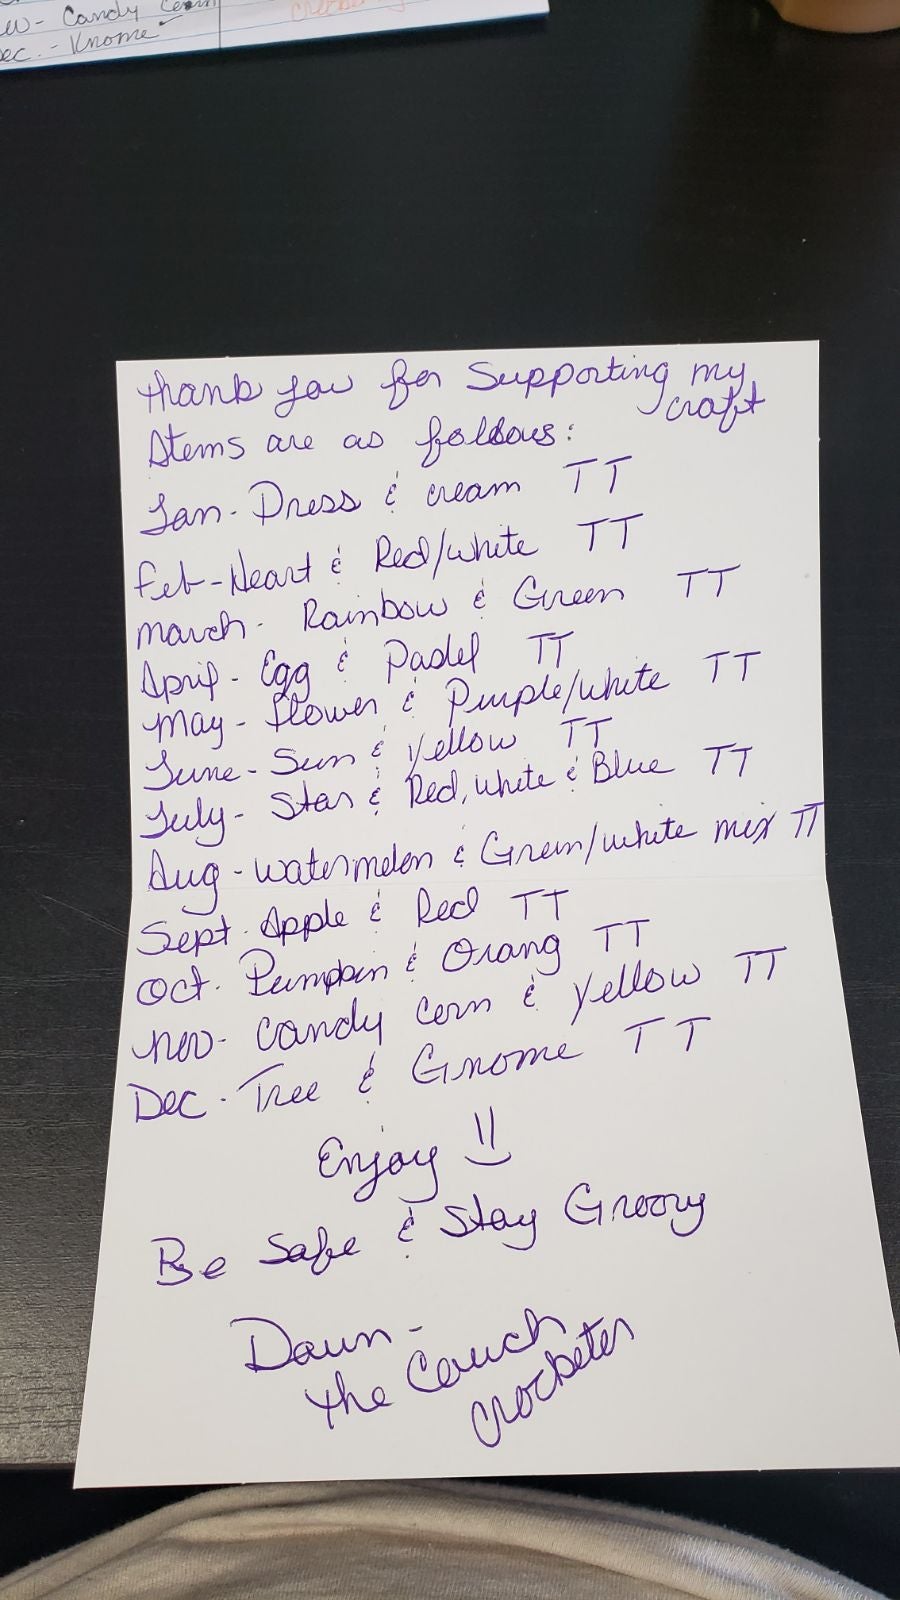 - Candy Corn
ec. - Knome ✓
thank you for Supporting my
craft
Items are as follows:
Jan - Dress & cream TT
Feb - Heart & Red/white TT
march - Rainbow & Green TT
April - Egg & Padel TT
may - flower & Purple/white TT
June - Sun & yellow TT
July - Star & Red, white & Blue TT
Aug - watermelon & Green/white mix TT
Sept - Apple & Red TT
Oct - Pumpkin & Orang TT
nov - Candy Corn & yellow TT
Dec - Tree & Gnome TT
Enjoy
Be Safe & Stay Groovy
Dawn -
the Couch
Crocheter